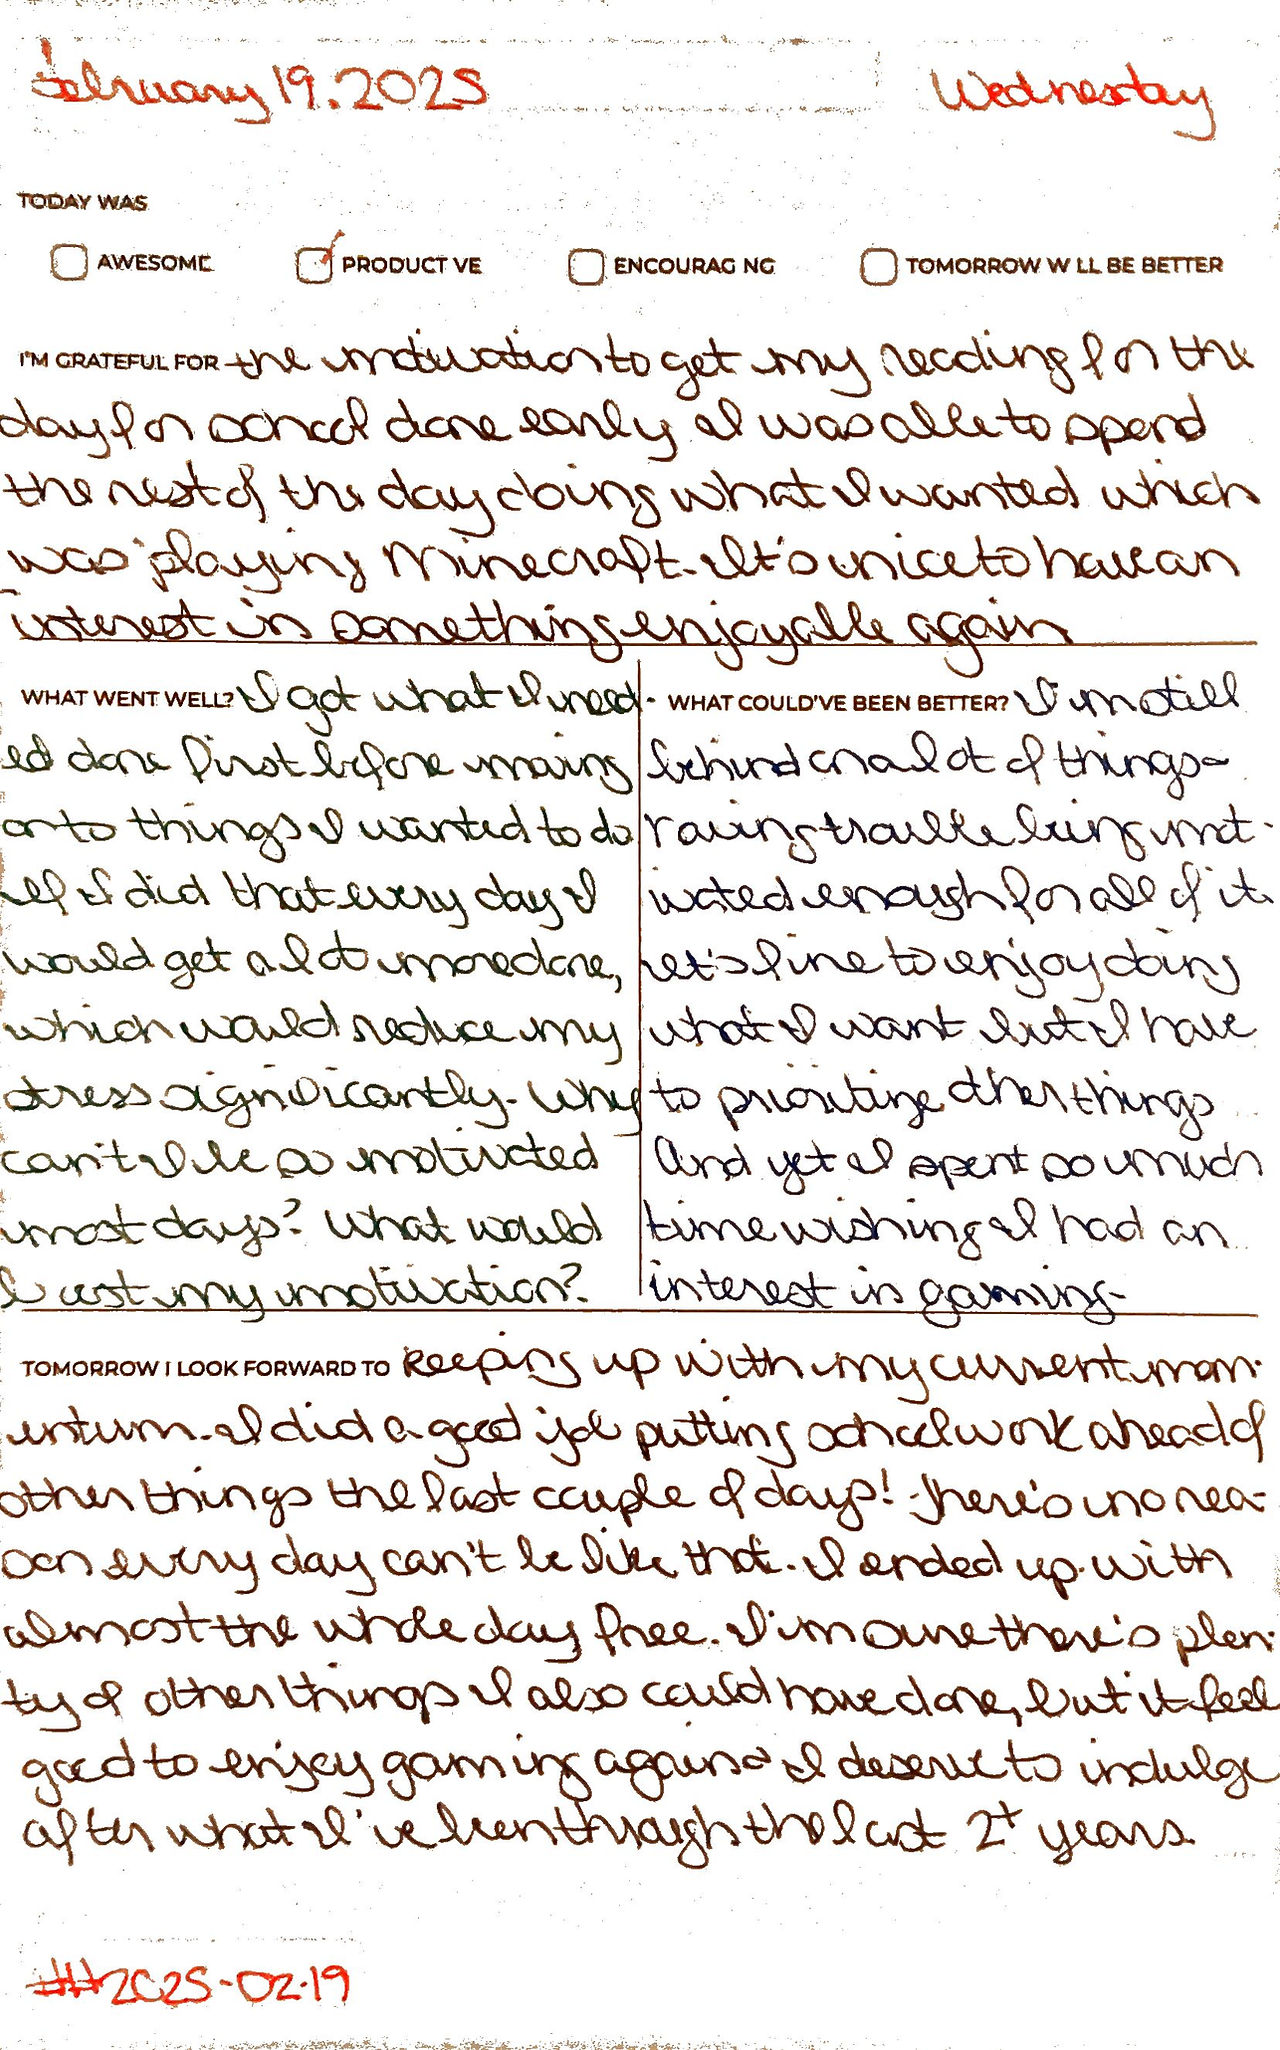 February 19.2025 Wednesday
TODAY WAS
AWESOME PRODUCT VE ENCOURAG NG TOMORROW W LL BE BETTER
I'M GRATEFUL FOR the motivation to get my reading for the
day for school done early I was able to spend
the rest of the day doing what I wanted which
was playing Minecraft. It's nice to have an
interest in something enjoyable again
WHAT WENT WELL? I got what I need-
ed done first before moving
on to things I wanted to do
If I did that every day I
would get a lot more done,
which would reduce my
stress significantly. Why
can't I be so motivated
most days? What would
boost my motivation?
WHAT COULD'VE BEEN BETTER? I'm still
behind on a lot of things
having trouble being mot-
ivated enough for all of it.
It's fine to enjoy doing
what I want but I have
to prioritize other things
And yet I spent so much
time wishing I had an
interest in gaming.
TOMORROW I LOOK FORWARD TO keeping up with my current mom-
entum. I did a good job putting schoolwork ahead of
other things the last couple of days! There's no rea-
son every day can't be like that. I ended up with
almost the whole day free. I'm sure there's plen-
ty of other things I also could have done, but it feel
good to enjoy gaming again I deserve to indulge
after what I've been through the last 2+ years.
##2025-02-19